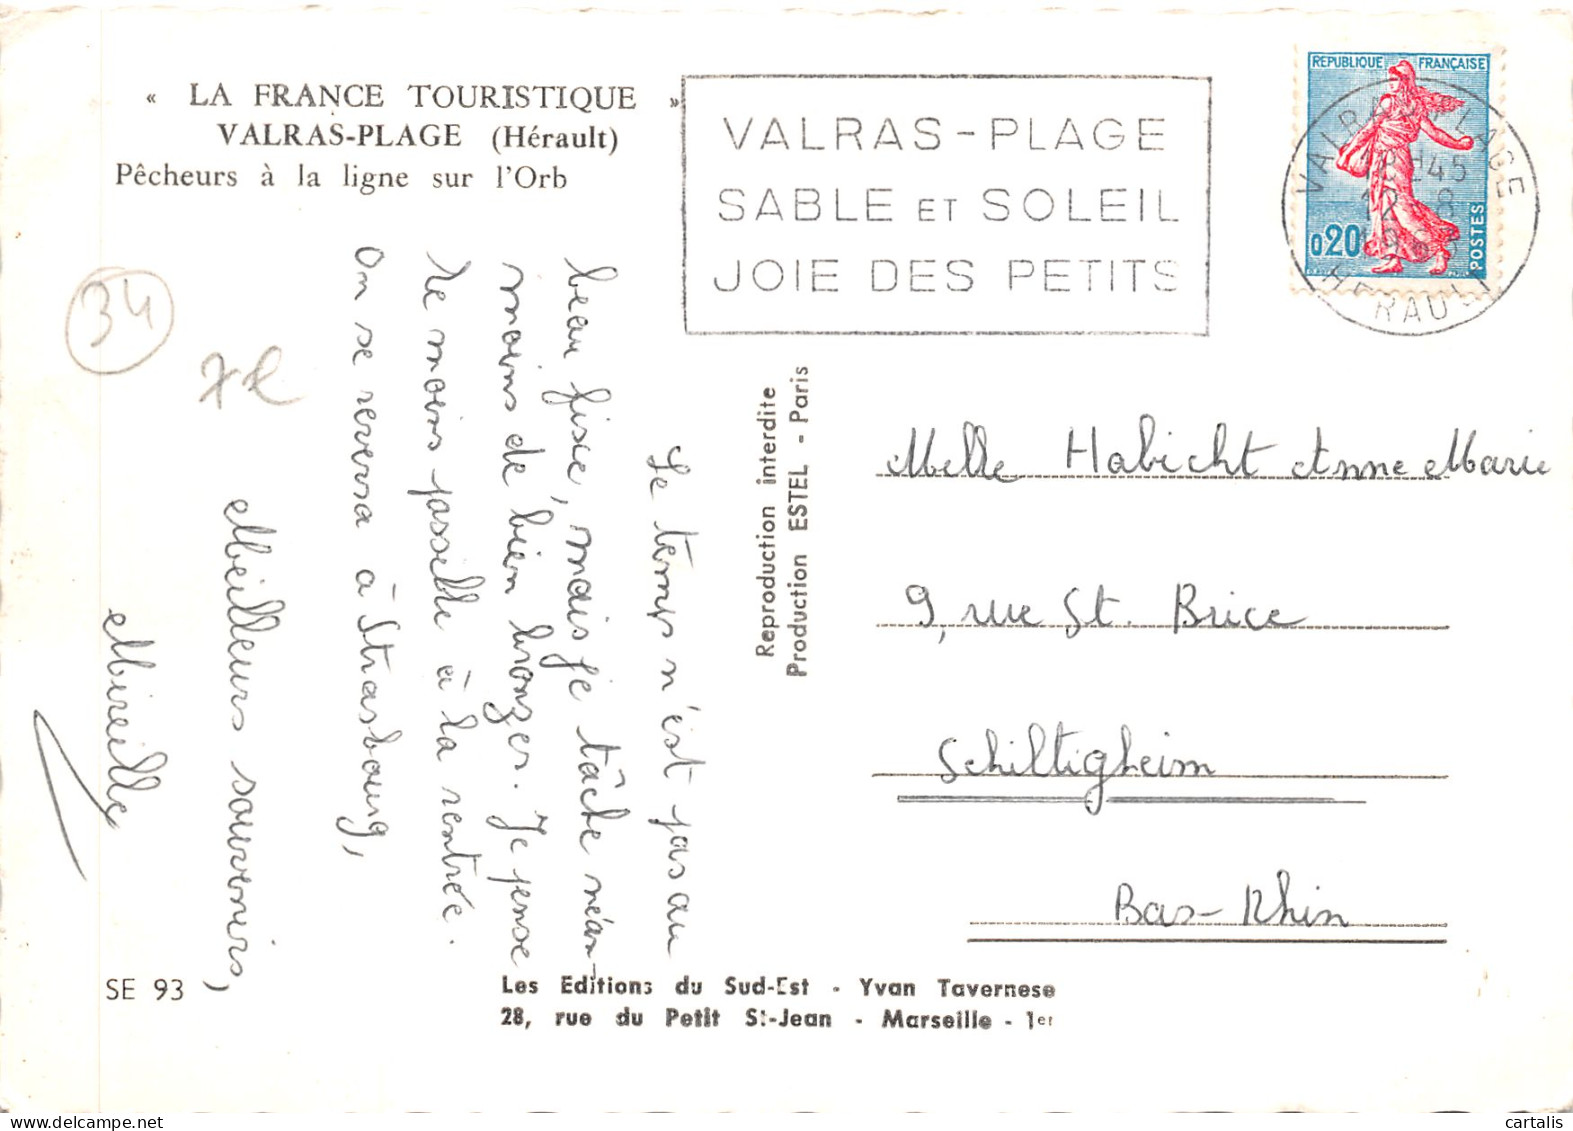 « LA FRANCE TOURISTIQUE »
VALRAS-PLAGE (Hérault)
Pêcheurs à la ligne sur l'Orb
VALRAS-PLAGE
SABLE ET SOLEIL
JOIE DES PETITS
REPUBLIQUE FRANÇAISE
0,20
POSTES
VALRAS-PLAGE
18H45
12-8
HERAULT
34
Le temps n'est pas au
beau fixe, mais je tâche néan-
moins de bien bronzer. Je pense
le moins possible à la rentrée.
On se reverra à Strasbourg,
Meilleurs souvenirs,
Mireille
Reproduction interdite
Production ESTEL - Paris
Melle Habicht Anne Marie
9, rue St. Brice
Schiltigheim
Bas-Rhin
SE 93
Les Editions du Sud-Est - Yvan Tavernese
28, rue du Petit St-Jean - Marseille - 1er
cartalis